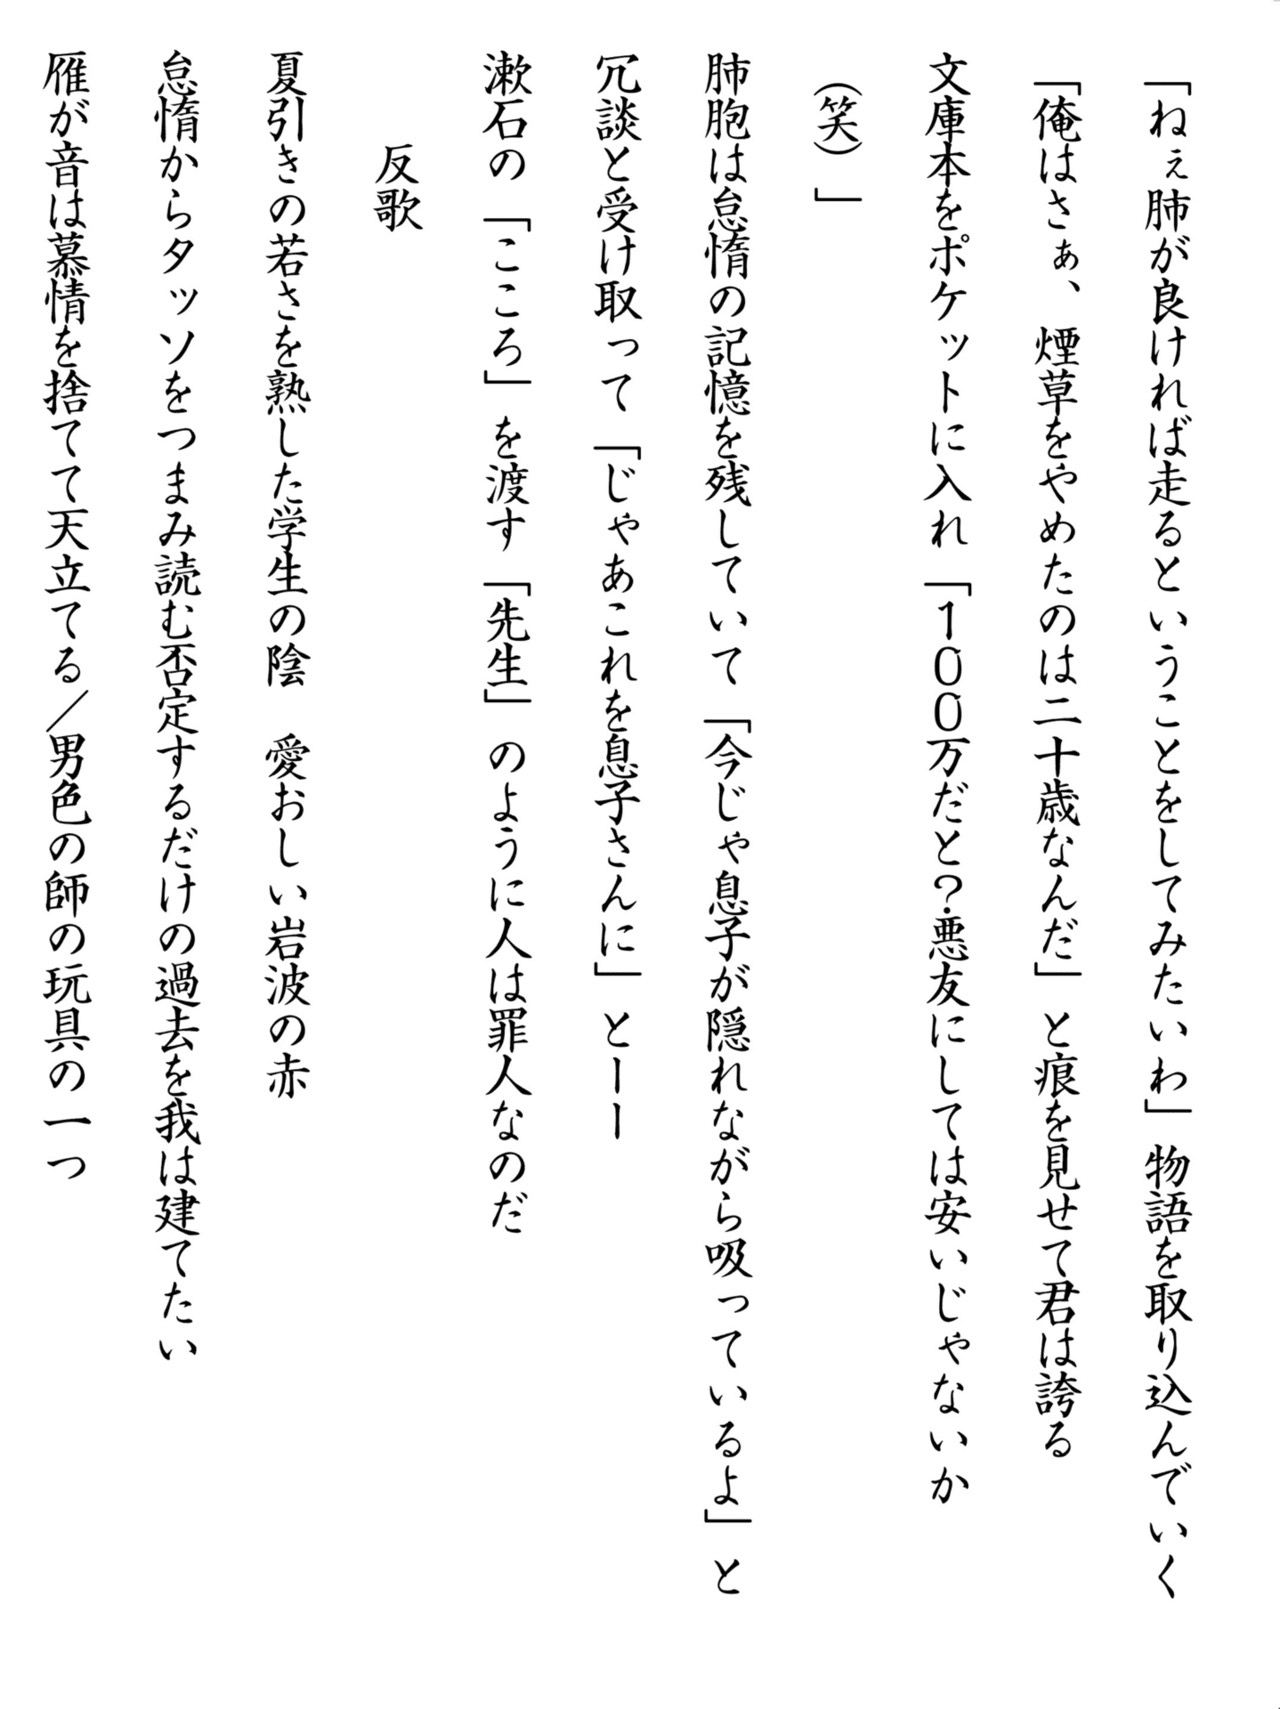 「ねぇ肺が良ければ走るということをしてみたいわ」物語を取り込んでいく
「俺はさぁ、煙草をやめたのは二十歳なんだ」と痕を見せて君は誇る
文庫本をポケットに入れ「１００万だと？悪友にしては安いじゃないか
（笑）」
肺胞は怠惰の記憶を残していて「今じゃ息子が隠れながら吸っているよ」と
冗談と受け取って「じゃあこれを息子さんに」とーー
漱石の「こころ」を渡す「先生」のように人は罪人なのだ
反歌
夏引きの若さを熟した学生の陰　愛おしい岩波の赤
怠惰からタッソをつまみ読む否定するだけの過去を我は建てたい
雁が音は慕情を捨てて天立てる／男色の師の玩具の一つ